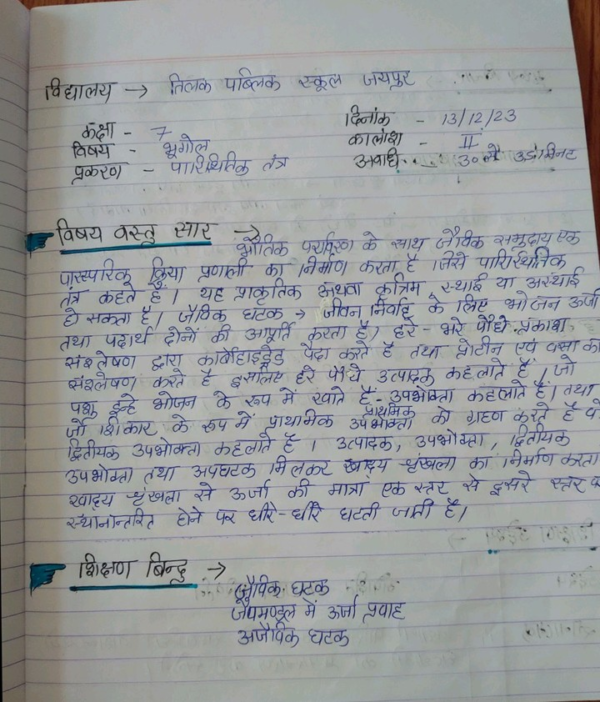 विद्यालय → तिलक पब्लिक स्कूल जयपुर
कक्षा - 7 दिनांक - 13/12/23
विषय - भूगोल कालांश - II
प्रकरण - पारिस्थितिक तंत्र अवधि - 30 से
विषय वस्तु सार →
भौतिक पर्यावरण के साथ जैविक समुदाय एक
पारस्परिक क्रिया प्रणाली का निर्माण करता है जिसे पारिस्थितिक
तंत्र कहते है। यह प्राकृतिक अथवा कृत्रिम, स्थाई या अस्थाई
हो सकता है। जैविक घटक → जीवन निर्वाह के लिए भोजन ऊर्जा
तथा पदार्थ दोनों की आपूर्ति करता है, हरे-भरे पौधे प्रकाश
संश्लेषण द्वारा कार्बोहाइड्रेड पैदा करते है तथा प्रोटीन एवं वसा का
संश्लेषण करते है इसलिए हरे पौधे उत्पादक कहलाते है। जो
पशु इन्हे भोजन के रूप में खाते है- उपभोक्ता कहलाते है। तथा
जो शिकार के रूप में प्राथमिक उपभोक्ता को ग्रहण करते है
द्वितीयक उपभोक्ता कहलाते है। उत्पादक, उपभोक्ता, द्वितीयक
उपभोक्ता तथा अपघटक मिलकर खाद्य श्रृंखला का निर्माण करता
खाद्य श्रृंखला से ऊर्जा की मात्रा एक स्तर से दूसरे स्तर
स्थानान्तरित होने पर धीरे-धीरे घटती जाती है।
शिक्षण बिन्दु →
जैविक घटक
जैवमण्डल में ऊर्जा प्रवाह
अजैविक घटक